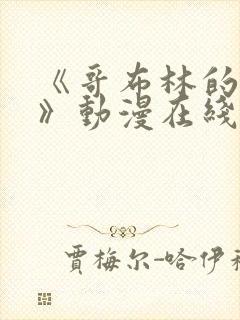 《哥布林的
》動漫在綫
賈梅尔-哈伊